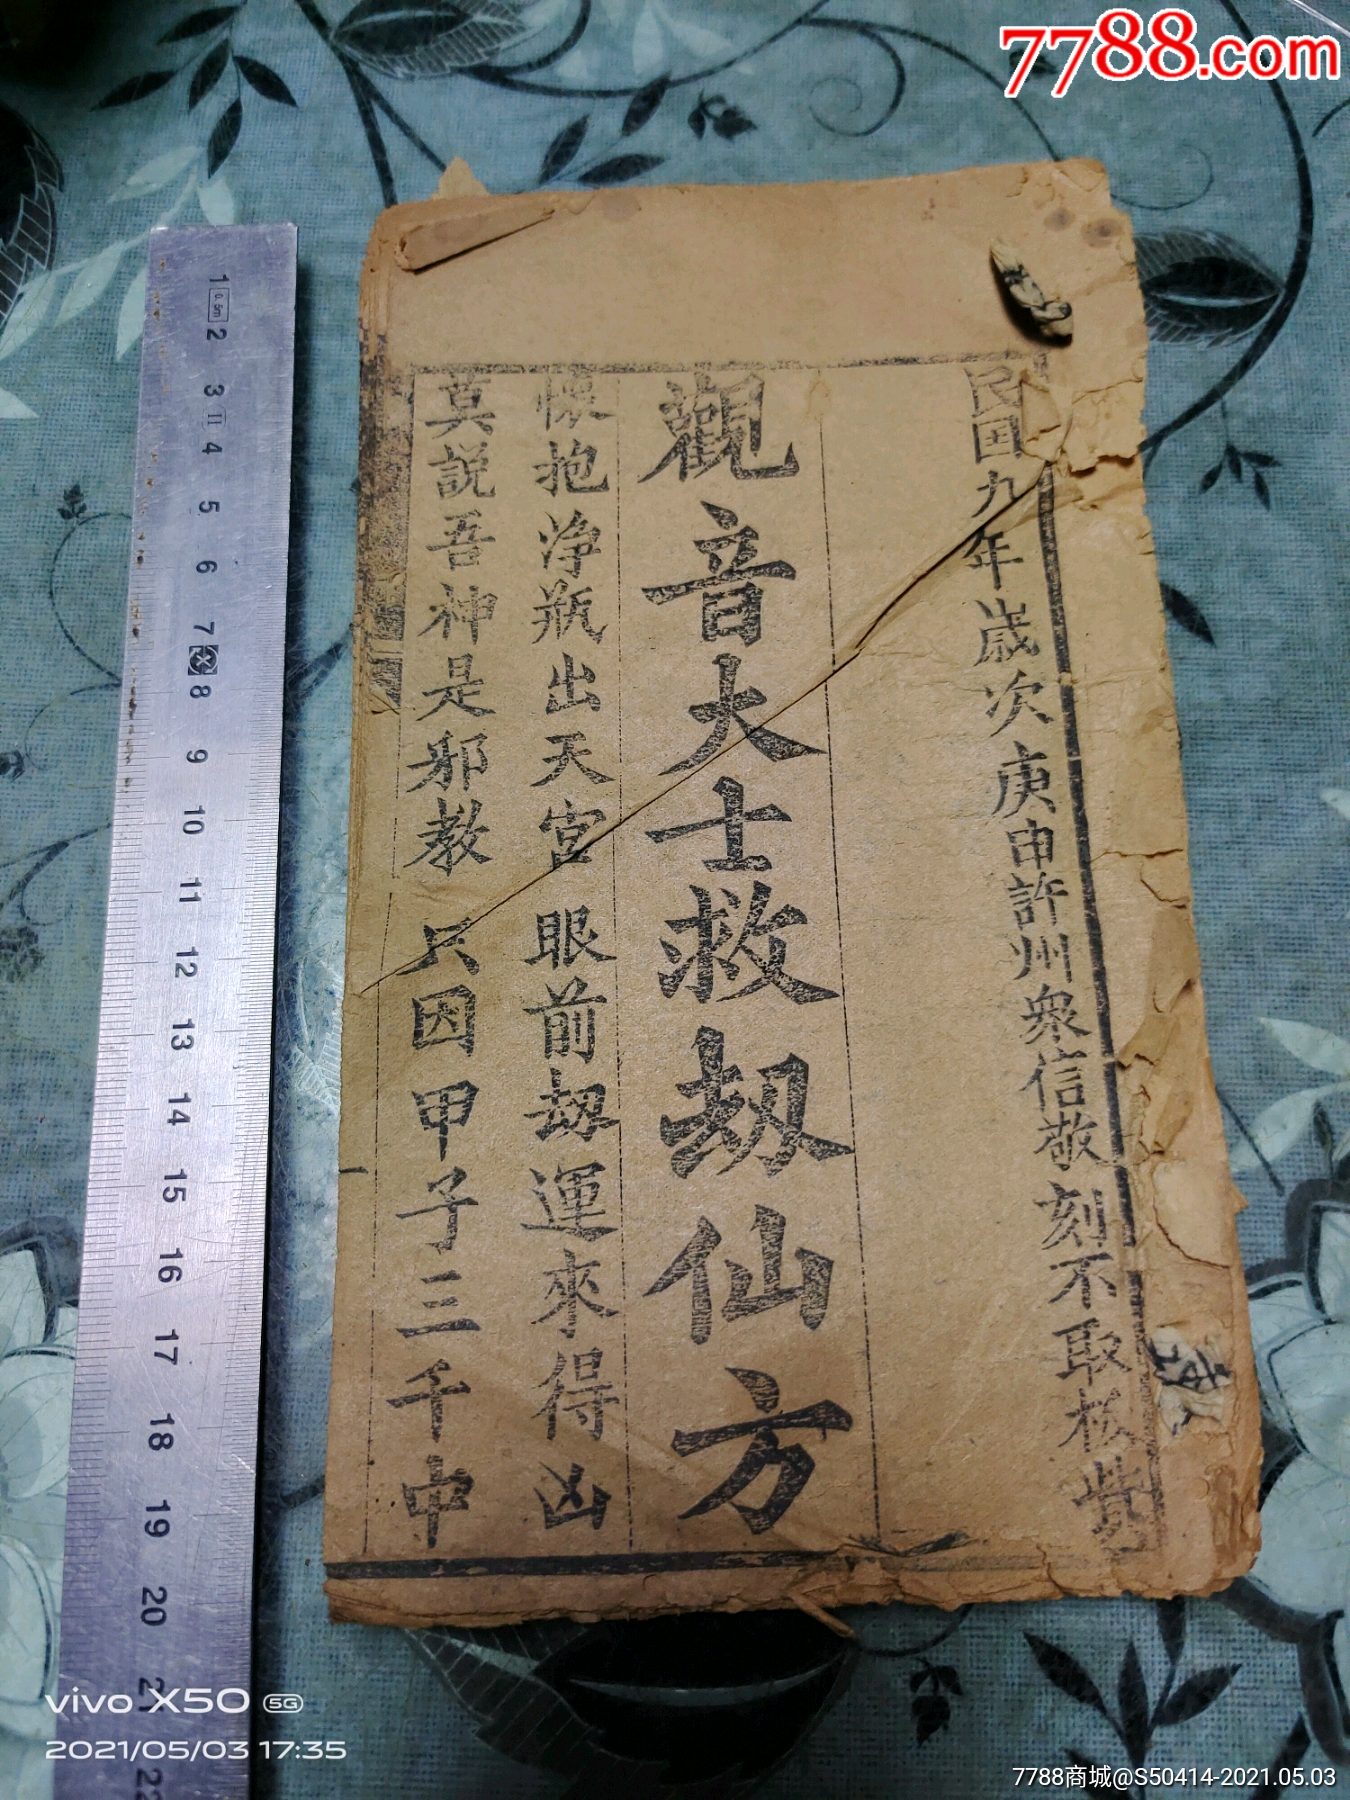 7788.com
民国九年歲次庚申許州衆信敬刻不取板貲
觀音大士救刼仙方
懷抱净瓶出天宫 眼前刼運來得凶
莫説吾神是邪教 只因甲子三千中
1 2 3 4 5 6 7 8 9 10 11 12 13 14 15 16 17 18 19 20 21 22
0.5m
II
vivo X50 5G
2021/05/03 17:35
7788商城@S50414-2021.05.03